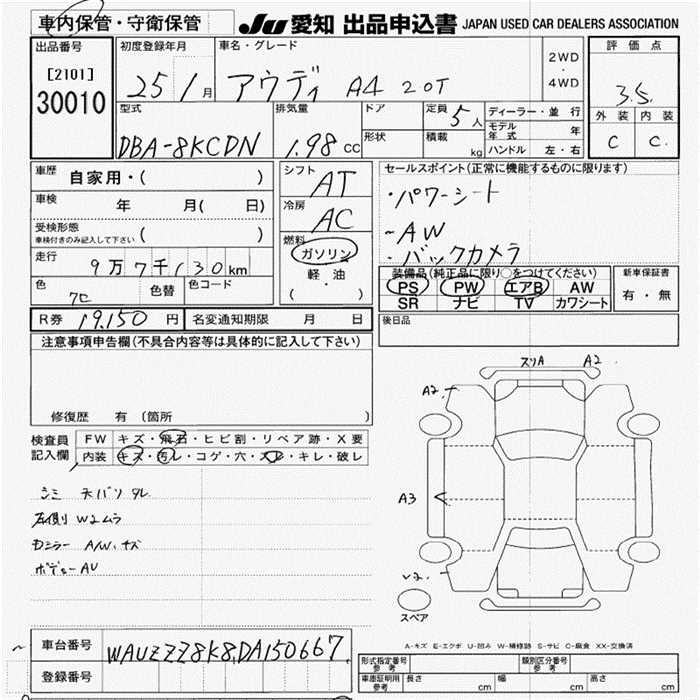 車内保管・守衛保管
JU 愛知 出品申込書 JAPAN USED CAR DEALERS ASSOCIATION
出品番号
[2101]
30010
初度登録年月
25 / 1 月
車名・グレード
アウディ A4 2.0T
2WD
・
4WD
評価点
3.5
外装 内装
C C
型式
DBA-8KCDN
排気量
1.98 CC
ドア
形状
定員 5 人
積載 kg
ディーラー・並行
モデル年式 年
ハンドル 左・右
車歴
自家用・( )
車検
年 月( 日)
受検形態
車検付きのみ記入して下さい ( )
走行
9万7千130km
色
色替
色コード
シフト
AT
冷房
AC
燃料
ガソリン
軽油
( ・ )
セールスポイント(正常に機能するものに限ります)
・パワーシート
・AW
・バックカメラ
装備品(純正品に限り○をつけてください)
PS PW エアB AW
SR ナビ TV カワシート
新車保証書
有・無
R券 19,150 円
名変通知期限 月 日
後日品
注意事項申告欄(不具合内容等は具体的に記入して下さい)
修復歴 有 (箇所 )
検査員
記入欄
FW キズ・飛石・ヒビ割・リペア跡・X要
内装 キズ・汚レ・コゲ・穴・スレ・キレ・破レ
シミ 天バリ タレ
左側 W2ムラ
ドミラー A/W、キズ
ボデーAU
スリA A2
A2
A3
スペア
A-キズ E-エクボ U-凹み W-補修跡 S-サビ C-腐食 XX-交換済
車台番号
WAUZZZ8K8DA150667
登録番号
形式指定番号 参考
類別区分番号 参考
車庫証明用 参考
長さ cm
幅 cm
高さ cm